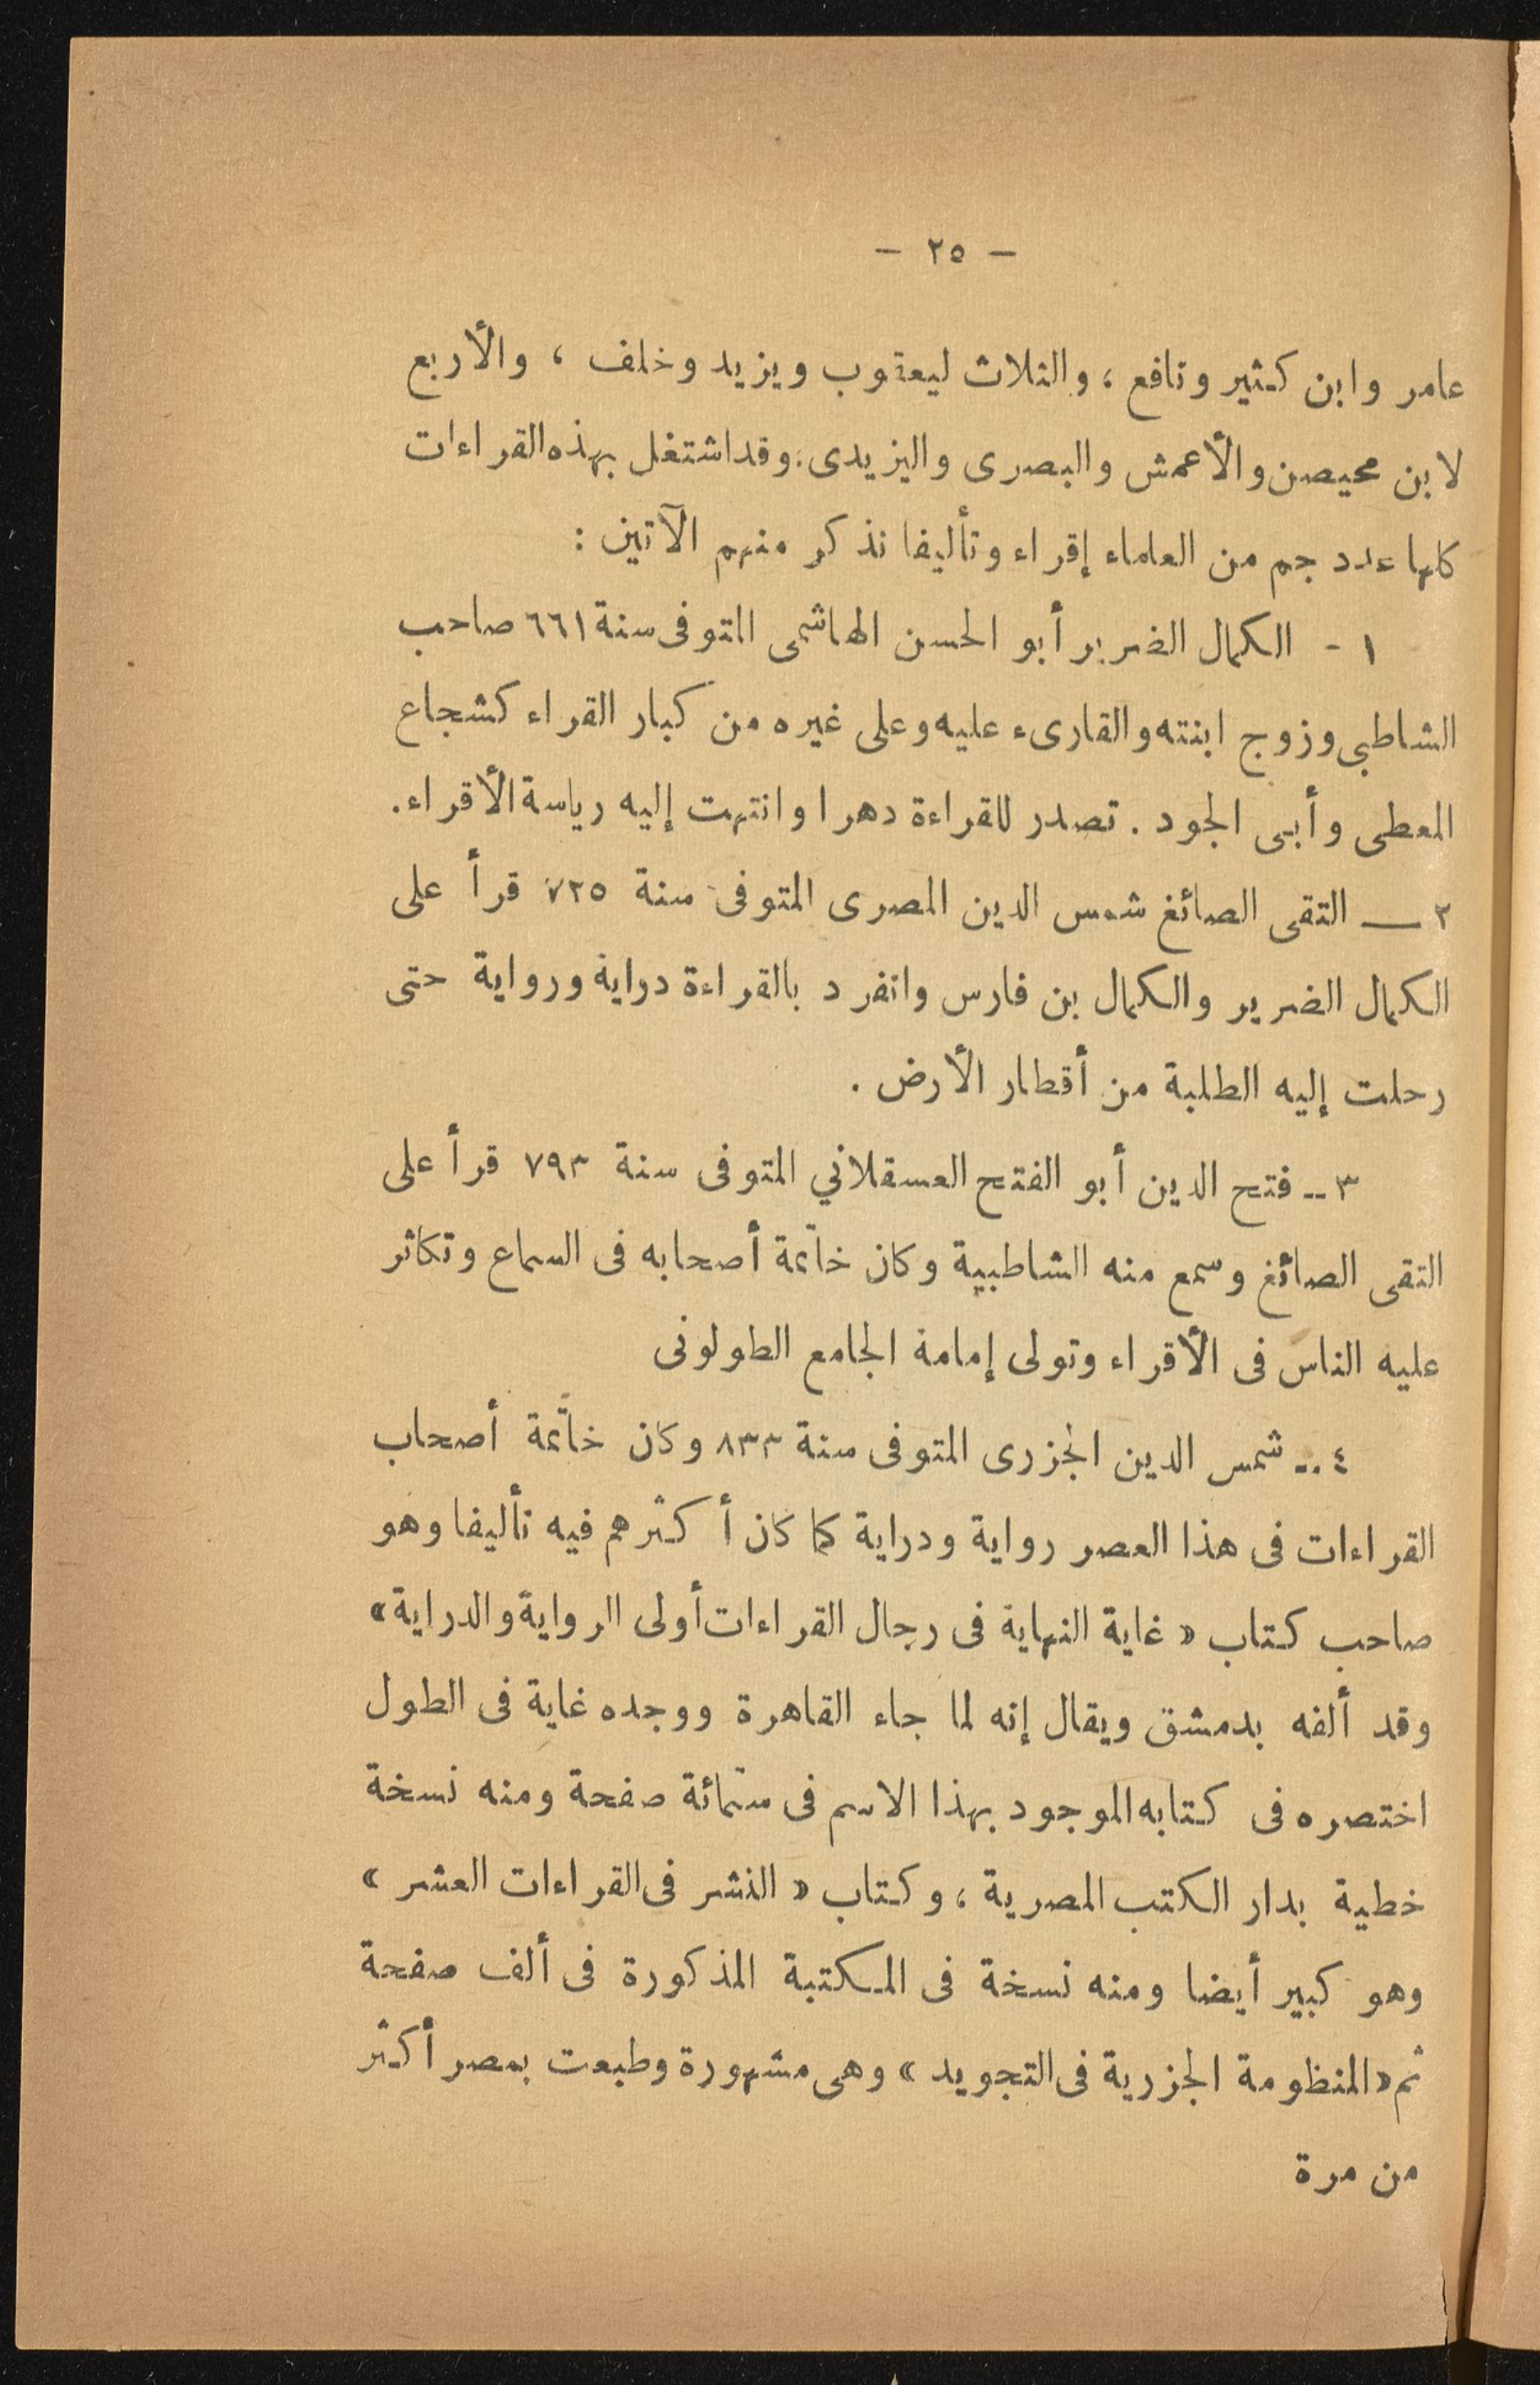 — ٢٥ —
عامر وابن كثير ونافع ، والثلاث ليعقوب ويزيد وخلف ، والأربع
لابن محيصن والأعمش والبصرى واليزيدى . وقد اشتغل بهذه القراءات
كلها عدد جم من العلماء إقراء وتأليفا نذكر منهم الآتين :
١ - الكمال الضرير أبو الحسن الهاشمى المتوفى سنة ٦٦١ صاحب
الشاطبى وزوج ابنته والقارىء عليه وعلى غيره من كبار القراء كشجاع
المعطى وأبى الجود . تصدر للقراءة دهرا وانتهت إليه رياسة الأقراء .
٢ — التقى الصائغ شمس الدين المصرى المتوفى سنة ٧٢٥ قرأ على
الكمال الضرير والكمال بن فارس وانفرد بالقراءة دراية ورواية حتى
رحلت إليه الطلبة من أقطار الأرض .
٣ -- فتح الدين أبو الفتح العسقلاني المتوفى سنة ٧٩٣ قرأ على
التقى الصائغ وسمع منه الشاطبية وكان خاتمة أصحابه فى السماع وتكاثر
عليه الناس فى الأقراء وتولى إمامة الجامع الطولونى
٤ -- شمس الدين الجزرى المتوفى سنة ٨٣٣ وكان خاتمة أصحاب
القراءات فى هذا العصر رواية ودراية كما كان أكثرهم فيه تأليفا وهو
صاحب كتاب « غاية النهاية فى رجال القراءات أولى الرواية والدراية »
وقد ألفه بدمشق ويقال إنه لما جاء القاهرة ووجده غاية فى الطول
اختصره فى كتابه الموجود بهذا الاسم فى ستمائة صفحة ومنه نسخة
خطية بدار الكتب المصرية ، وكتاب « النشر فى القراءات العشر »
وهو كبير أيضا ومنه نسخة فى المكتبة المذكورة فى ألف صفحة
ثم « المنظومة الجزرية فى التجويد » وهى مشهورة وطبعت بمصر أكثر
من مرة